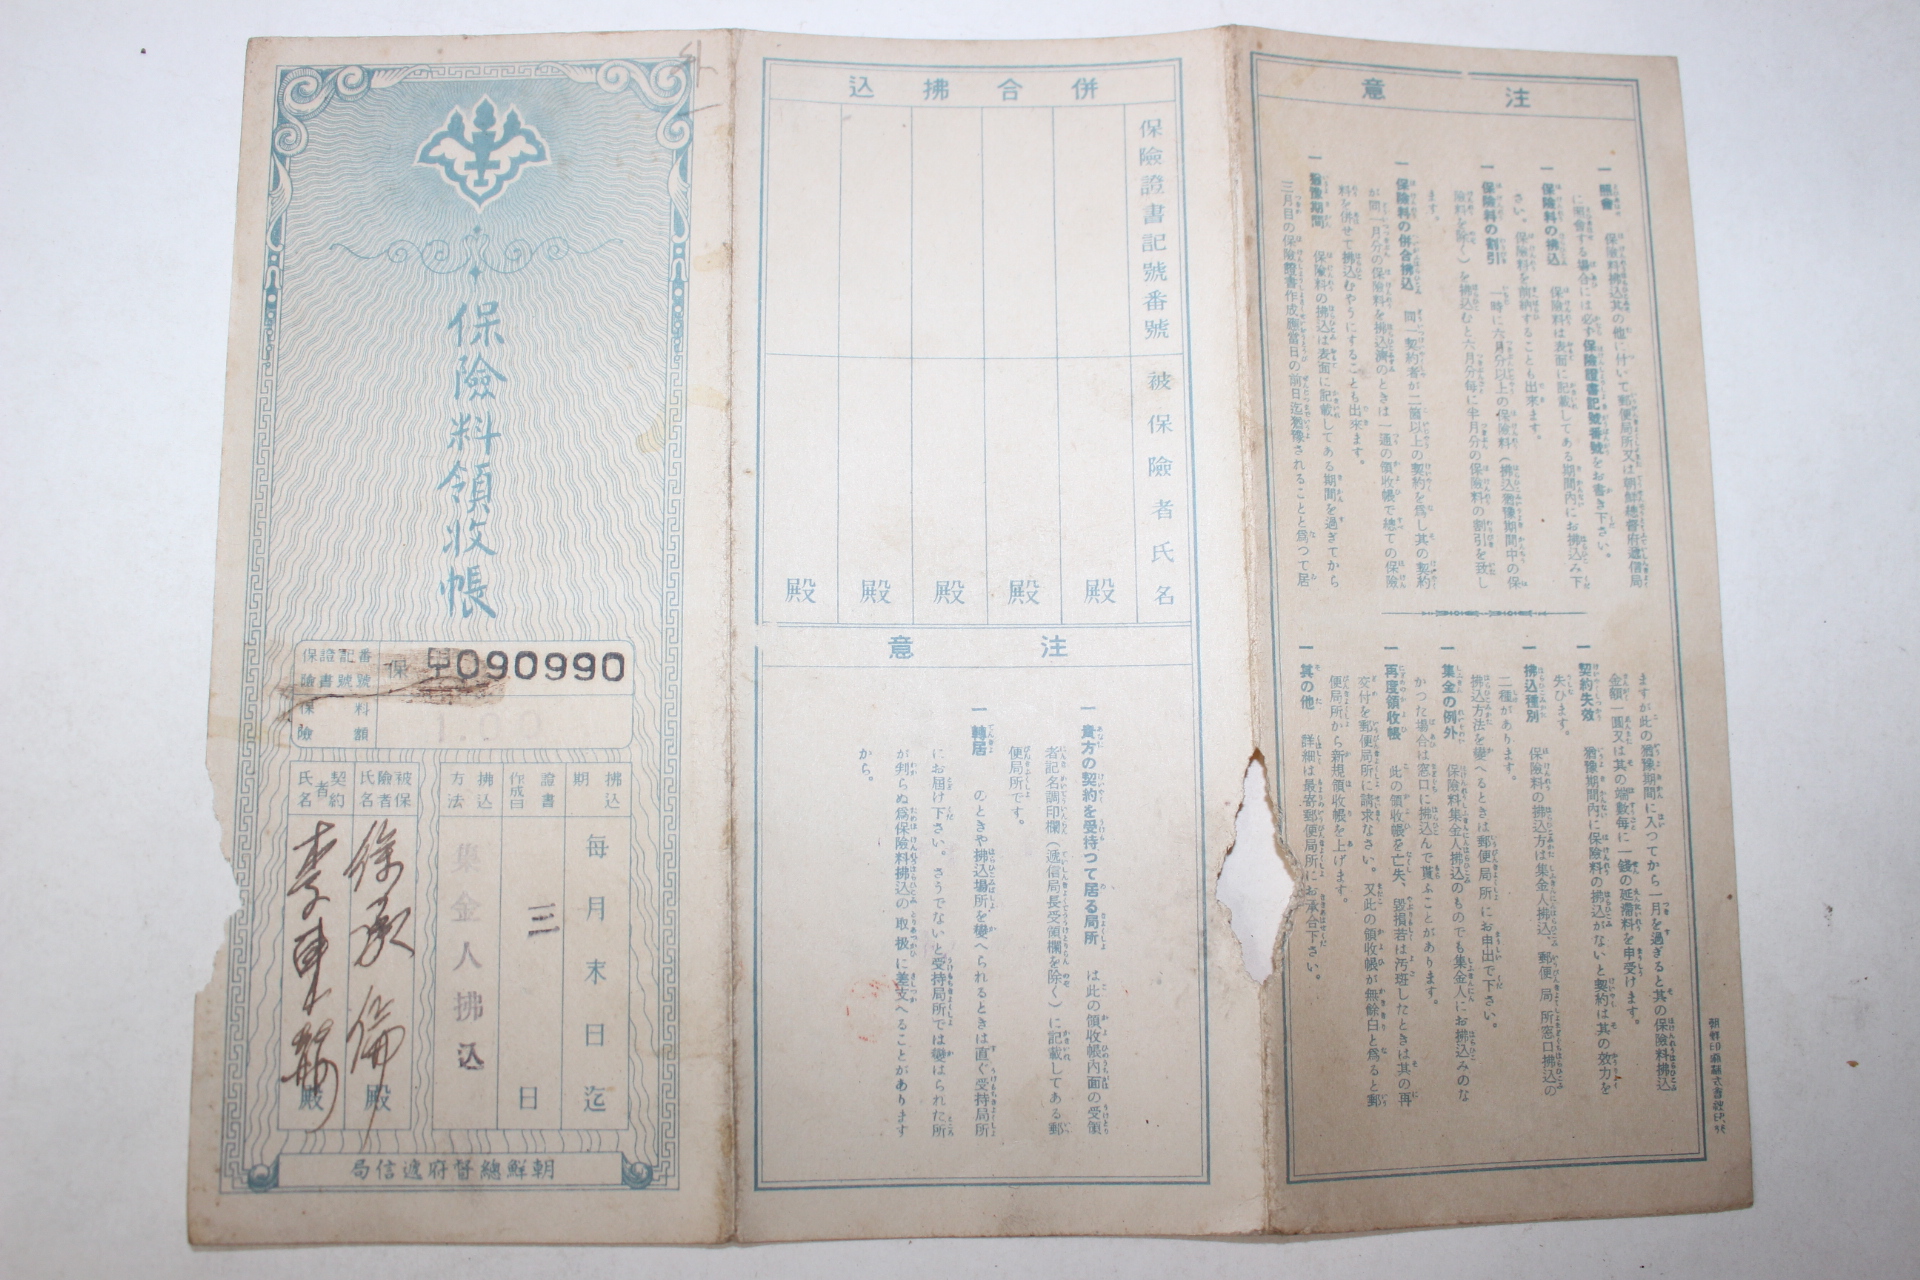 保險料領收帳
保險證書記號番號
保 090990
保險料額
1.00
拂込期
每月末日迄
證書作成日
三日
拂込方法
集金人拂込
被保險者氏名
徐承倫殿
契約者氏名
殿
朝鮮總督府遞信局
併合拂込
保險證書記號番號
被保險者氏名
殿
殿
殿
殿
殿
注意
一 貴方の契約を受持つて居る局所 は此の領收帳內面の受領
者記名調印欄(遞信局長受領欄を除く)に記載してある郵
便局所です。
一 轉居 のときや拂込場所を變へられるときは直ぐ受持局所
にお届け下さい。さうでないと受持局所では變はられた所
が判らぬ爲保險料拂込の取扱に差支へることがあります
から。
注意
一 照會 保險料拂込其の他に付いて郵便局所又は朝鮮總督府遞信局
に照會する場合には必ず保險證書記號番號をお書き下さい。
一 保險料の拂込 保險料は表面に記載してある期間內にお拂込み下
さい。保險料を前納することも出來ます。
一 保險料の割引 一時に六月分以上の保險料(拂込猶豫期間中の保
險料を除く)を拂込むと六月分每に半月分の保險料の割引を致し
ます。
一 保險料の併合拂込 同一契約者が二箇以上の契約を爲し其の契約
が同一月分の保險料を拂込濟のときは一通の領收帳で總ての保險
料を併せて拂込むやうにすることも出來ます。
一 猶豫期間 保險料の拂込は表面に記載してある期間を過ぎてから
三月目の保險證書作成應當日の前日迄猶豫されることと爲つて居
ますが此の猶豫期間に入つてから一月を過ぎると其の保險料拂込
金額一圓又は其の端數每に一錢の延滯料を申受けます。
一 契約失效 猶豫期間內に保險料の拂込がないと契約は其の效力を
失ひます。
一 拂込種別 保險料の拂込方は集金人拂込、郵便局所窓口拂込の
二種があります。
拂込方法を變へるときは郵便局所にお申出で下さい。
一 集金の例外 保險料集金人拂込のものでも集金人にお拂込みのな
かつた場合は窓口に拂込んで貰ふことがあります。
一 再度領收帳 此の領收帳を亡失、毀損若は汚斑したときは其の再
交付を郵便局所に請求なさい。又此の領收帳が無餘白と爲ると郵
便局所から新規領收帳を上げます。
一 其の他 詳細は最寄郵便局所にお承合下さい。
朝鮮印刷株式會社